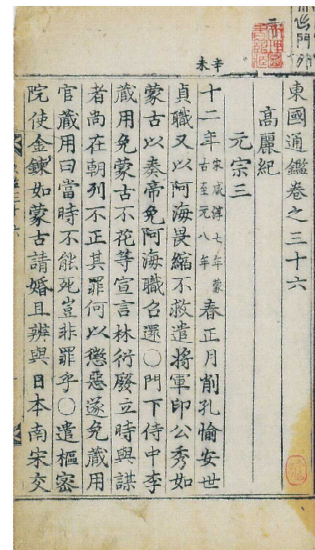 東國通鑑卷之三十六
高麗紀
元宗三
辛未
十二年宋咸淳七年蒙古至元八年春正月削孔愉安世
貞職又以阿海畏縮不救遣將軍印公秀如
蒙古以奏帝免阿海職召還○門下侍中李
藏用免蒙古不花等宣言林衍廢立時與謀
者尚在朝列不正其罪何以懲惡遂免藏用
官藏用曰當時不能死豈非罪乎○遣樞密
院使金鍊如蒙古請婚且辨與日本南宋交